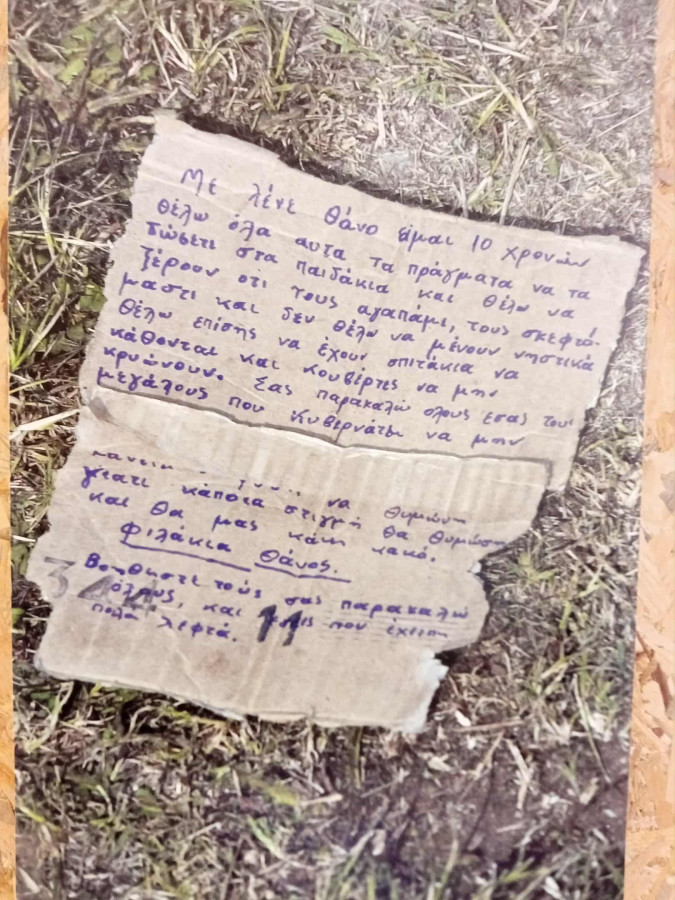 Με λένε Θάνο είμαι 10 χρονών
θέλω όλα αυτα τα πράγματα να τα
δώσετε στα παιδάκια και θέλω να
ξέρουν οτι τους αγαπάμε, τους σκεφτό-
μαστε και δεν θέλω να μένουν νηστικά
θέλω επίσης να έχουν σπιτάκια να
κάθονται και κουβέρτες να μην
κρυώνουν. Σας παρακαλώ ολους εσας τους
μεγάλους που κυβερνάτε να μην
να θυμώνη
γιατι κάποια στιγμή θα θυμώση
και θα μας κάνη κακό.
Φιλάκια Θάνος.
Βοηθηστε τούς σας παρακαλώ
όλους, και εσεις που έχετε
πολα λεφτά.
344 11